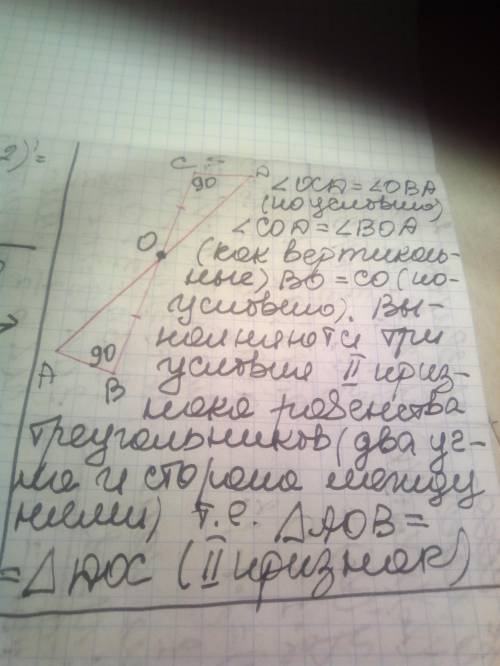 2)=
C
D
90
O
A
90
B
∠OCD=∠OBA
(по условию)
∠COD=∠BOA
(как вертикаль-
ные) BO=CO (по
условию). Вы-
полняются три
условия II приз-
нака равенства
треугольников (два уг-
ла и сторона между
ними) т.е. △AOB=
=△DOC (II признак)